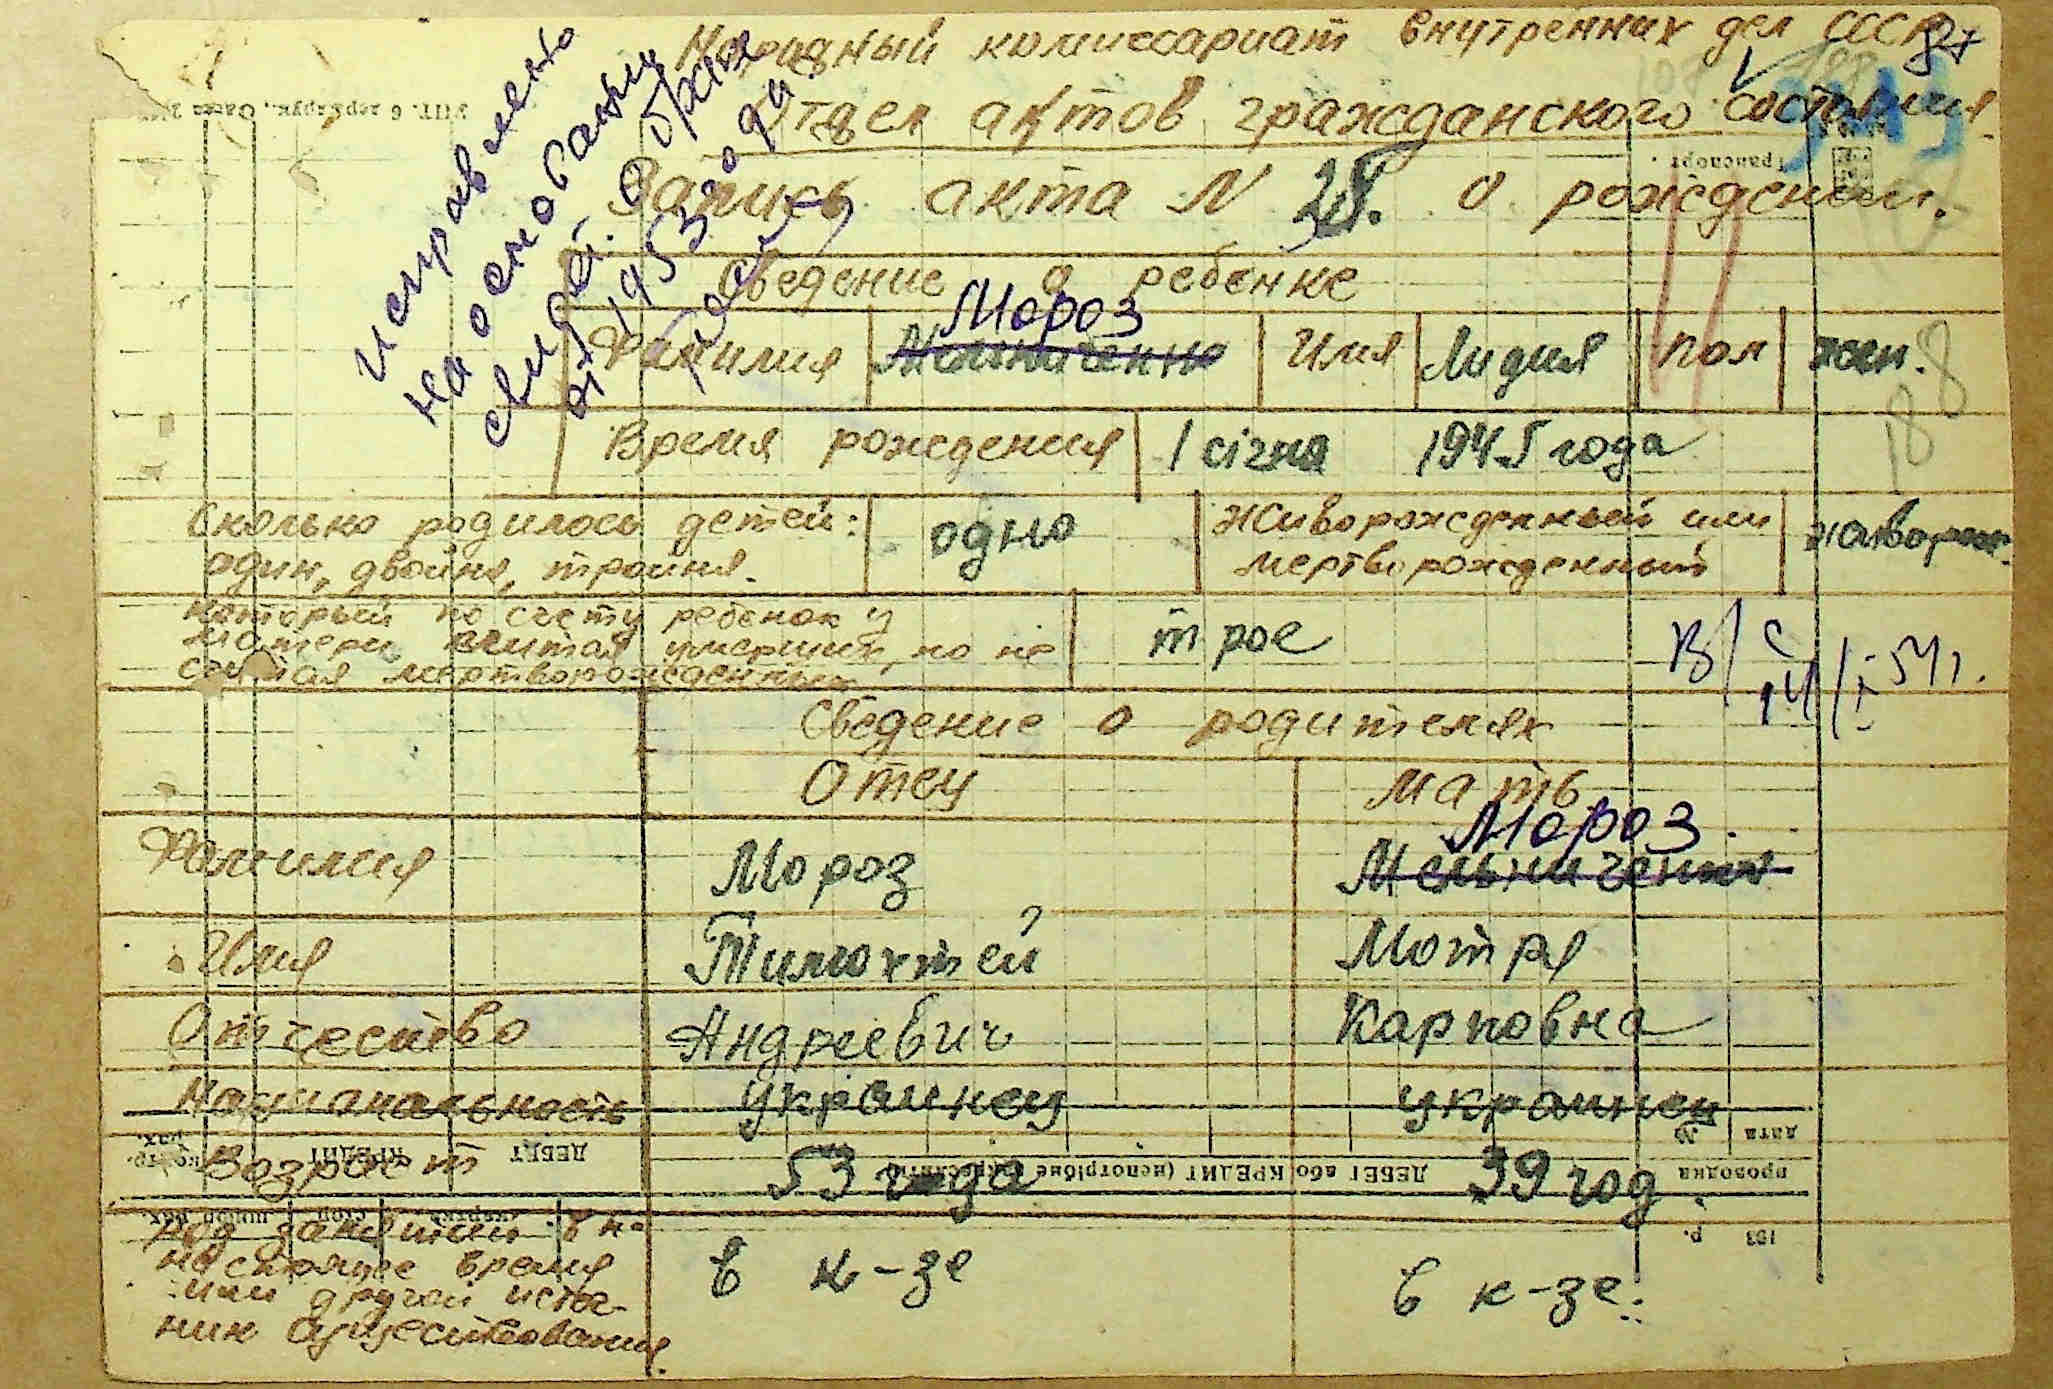 Народный комиссариат внутренних дел СССР
Отдел актов гражданского состояния
Запись акта N 28. о рождении.
исправлено
на основании
свид. о браке
от 1953 года
Сведение о ребенке
Мороз
Фамилия Мельниченко Имя Лидия пол жен.
Время рождения 1 січня 1945 года
Сколько родилось детей: один, двойня, тройня. одно
Живорожденный или мертворожденный живорож.
который по счету ребенок у
матери, считая умерших, но не
считая мертворожденных трое
В/с 14/I-51г.
188
Сведение о родителях
Отец Мать
Мороз.
Фамилия Мороз Мельниченко
Имя Тимохтей Мотря
Отчество Андреевич Карповна
Национальность украинец украинец
дата №
Возраст 53 года 39 год
ДЕБЕТ КРЕДИТ
ДЕБЕТ або КРЕДИТ (непотрібне закреслити)
проводка
193 р.
Род занятий в на-
настоящее время
или другой источ-
ник существования.
в к-зе в к-зе.
Транспорт.